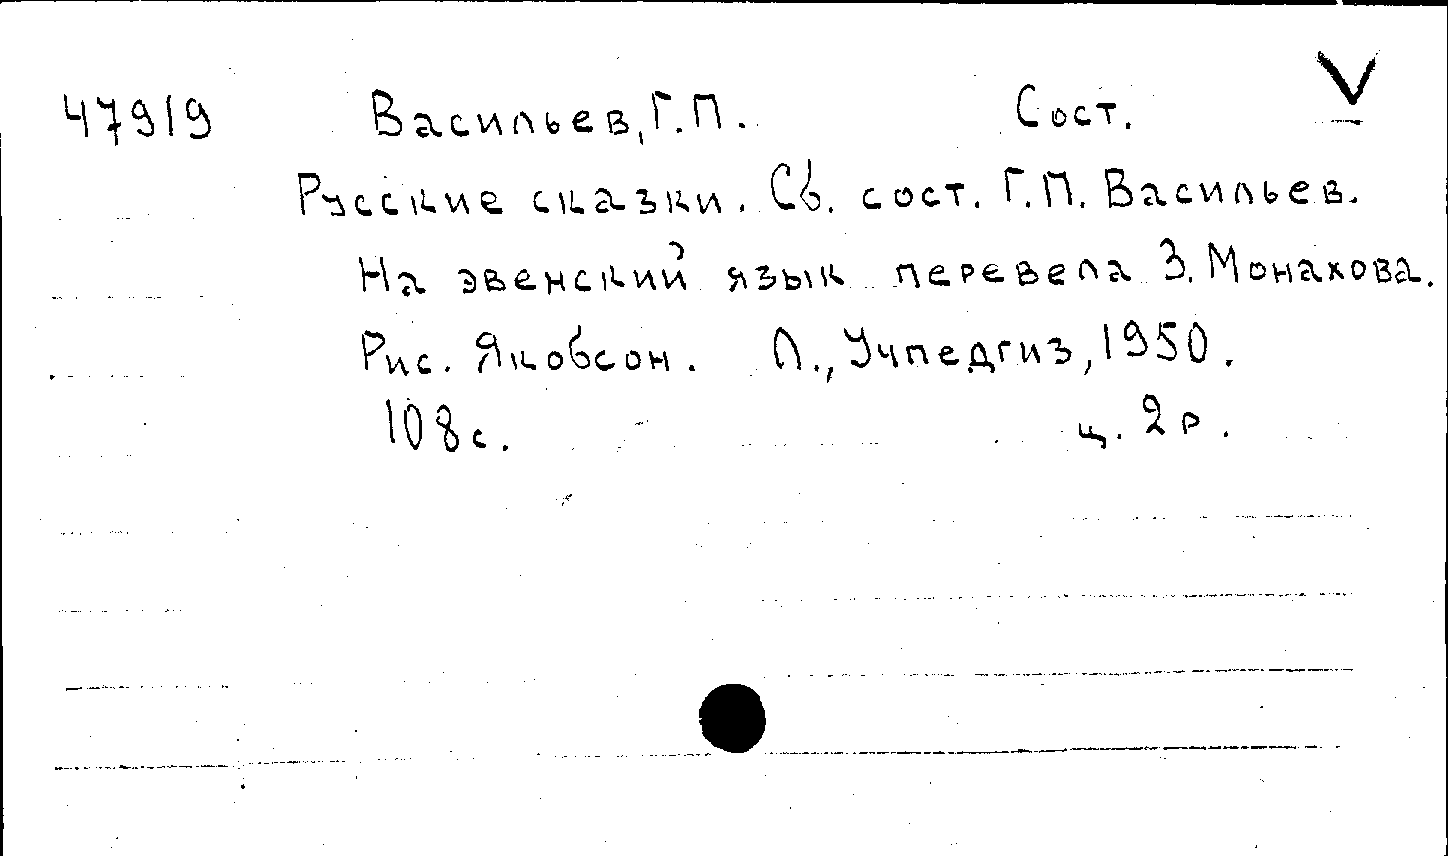 47919 Васильев, Г.П. Сост. V
Русские сказки. Сб. сост. Г.П. Васильев.
На эвенский язык перевела З. Монахова.
Рис. Якобсон. Л., Учпедгиз, 1950.
108 с. ц. 2 р.